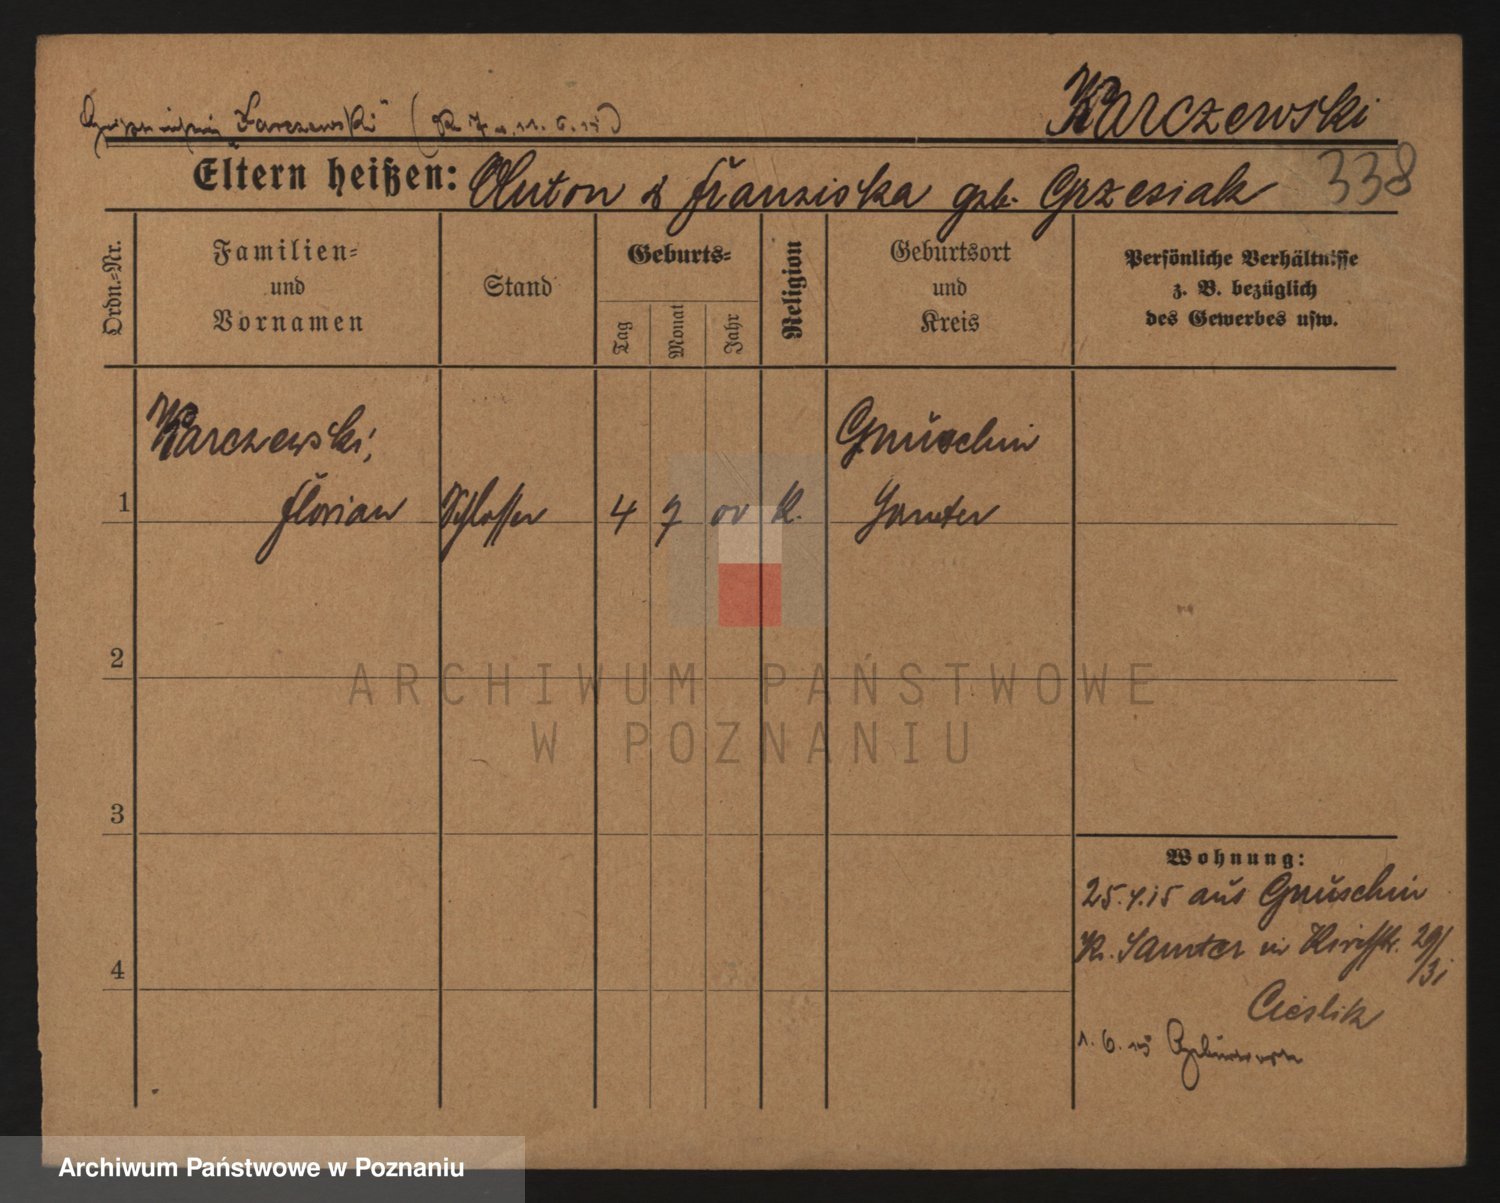 Karczewski
"Karczewski"
Eltern heißen: Anton & Franziska geb. Grzesiak
338
Ordn.-Nr.
Familien- und Vornamen
Stand
Geburts-
Tag
Monat
Jahr
Religion
Geburtsort und Kreis
Persönliche Verhältnisse
z. B. bezüglich
des Gewerbes usw.
Karczewski,
Gnuschin
1
Florian
Schlosser
4
7
00
K.
Samter
2
ARCHIWUM PAŃSTWOWE
W POZNANIU
3
Wohnung:
25.4.15 aus Gnuschin
Kr. Samter in Kirchstr. 29/
31
4
Cieslik
1. 6. 15
Archiwum Państwowe w Poznaniu